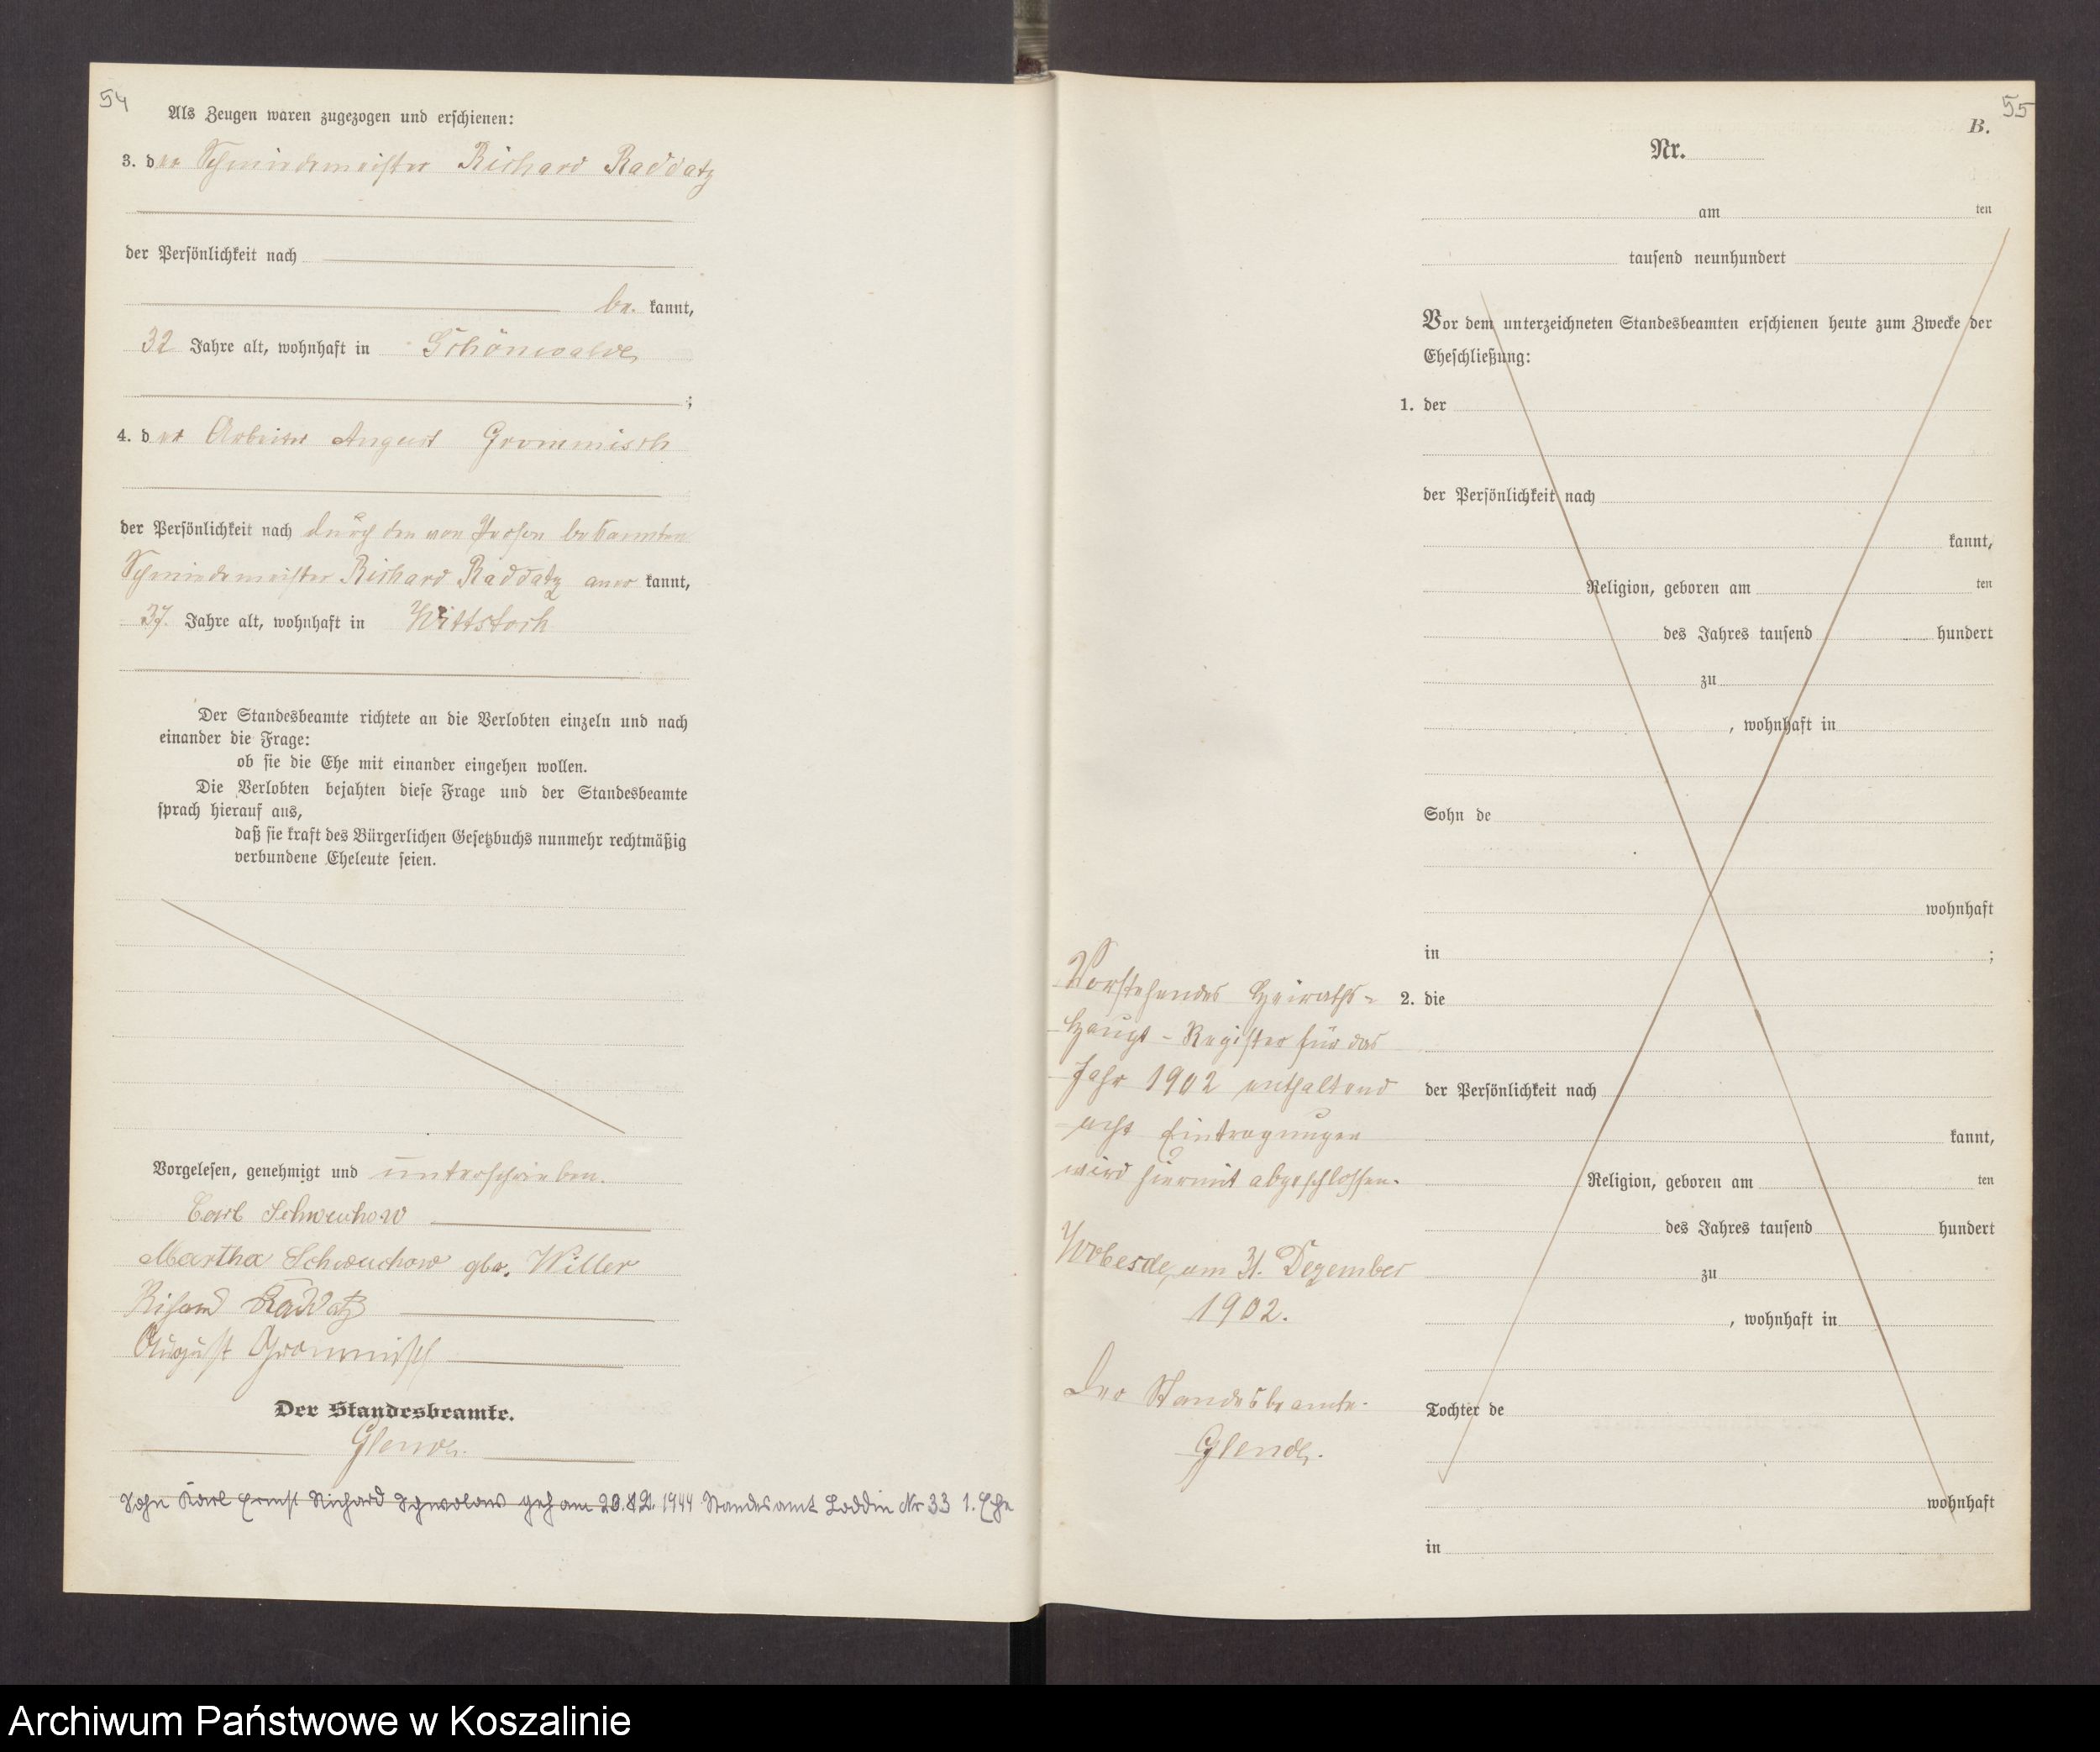 54
Als Zeugen waren zugezogen und erschienen:
3. der Schmiedemeister Richard Raddatz
der Persönlichkeit nach
be kannt,
32 Jahre alt, wohnhaft in Schönwalde
;
4. der Arbeiter August Grommisch
der Persönlichkeit nach durch den von Person bekannten
Schmiedemeister Richard Raddatz aner kannt,
37 Jahre alt, wohnhaft in Wittstock
Der Standesbeamte richtete an die Verlobten einzeln und nach
einander die Frage:
ob sie die Ehe mit einander eingehen wollen.
Die Verlobten bejahten diese Frage und der Standesbeamte
sprach hierauf aus,
daß sie kraft des Bürgerlichen Gesetzbuchs nunmehr rechtmäßig
verbundene Eheleute seien.
Vorgelesen, genehmigt und unterschrieben.
Carl Schwuchow
Martha Schwuchow geb. Willer
Richard Raddatz
August Grommisch
Der Standesbeamte.
Glende.
Sohn Karl Ernst Richard am 1944 Standesamt Loddin Nr 33 1. Ehe
55
B.
Nr.
am ten
tausend neunhundert
Vor dem unterzeichneten Standesbeamten erschienen heute zum Zwecke der
Eheschließung:
1. der
der Persönlichkeit nach
kannt,
Religion, geboren am ten
des Jahres tausend hundert
zu
, wohnhaft in
Sohn de
wohnhaft
in ;
2. die
der Persönlichkeit nach
kannt,
Religion, geboren am ten
des Jahres tausend hundert
zu
, wohnhaft in
Tochter de
wohnhaft
in
Vorstehendes Heiraths-
Haupt-Register für das
Jahr 1902 enthaltend
acht Eintragungen
wird hiermit abgeschlossen.
Wobesde, am 31. Dezember
1902.
Der Standesbeamte.
Glende.
Archiwum Państwowe w Koszalinie